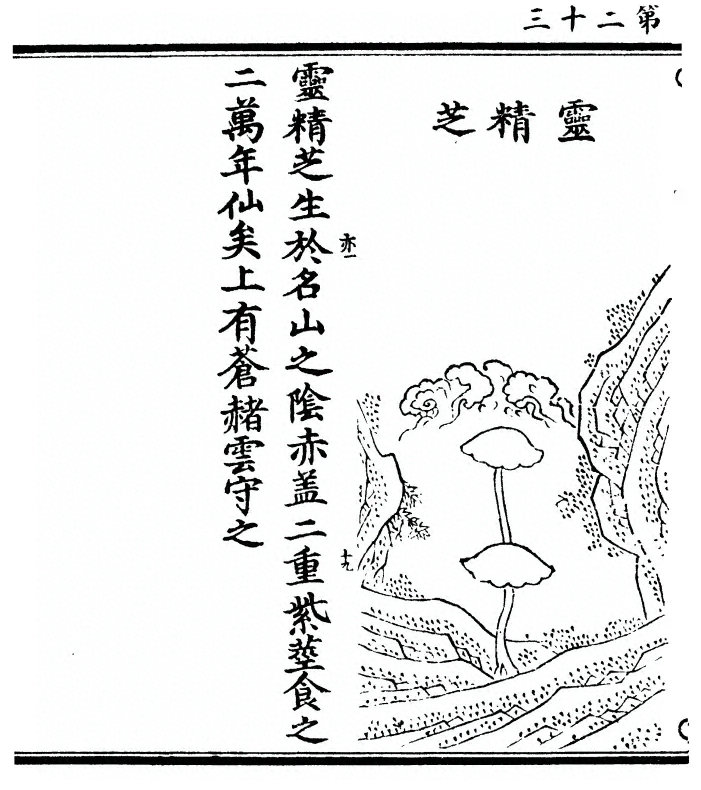 第二十三
靈精芝
亦一
十九
靈精芝生於名山之陰赤盖二重紫莖食之
二萬年仙矣上有蒼赭雲守之